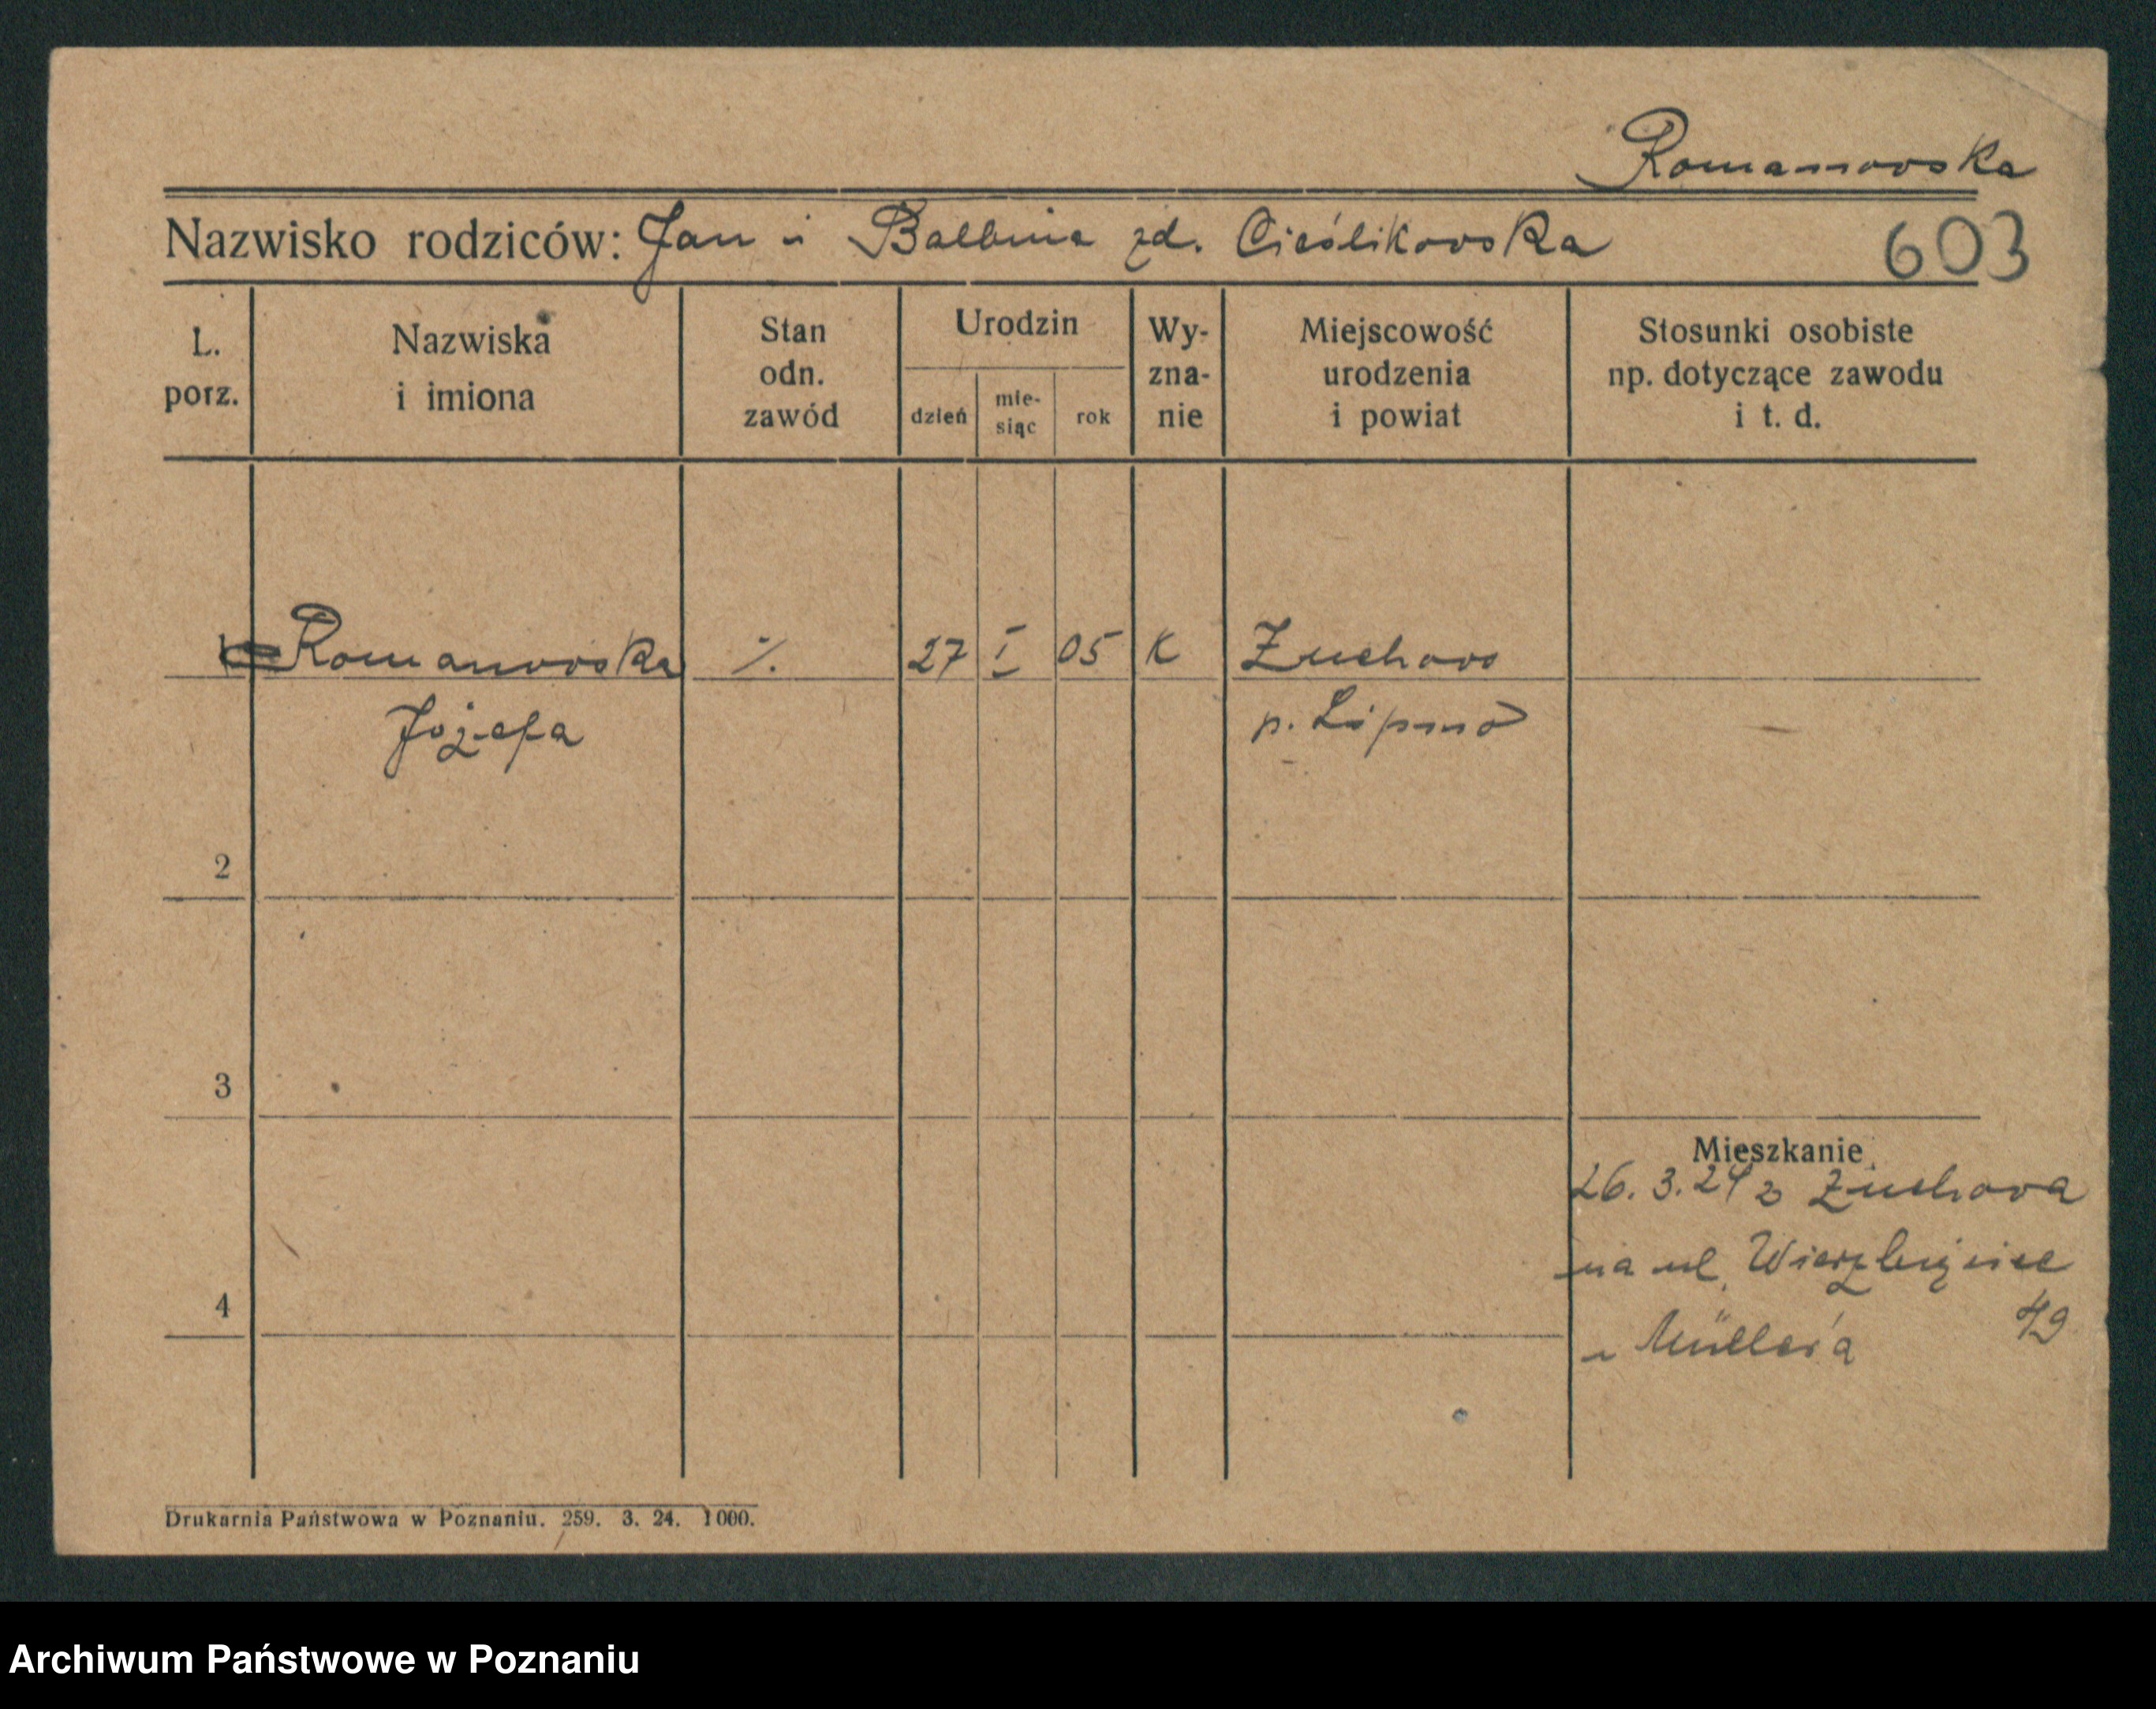 Romanowska
Nazwisko rodziców: Jan i Balbina zd. Cieślikowska 603
L. porz.
Nazwiska i imiona
Stan odn. zawód
Urodzin
dzień
mie-siąc
rok
Wy-zna-nie
Miejscowość urodzenia i powiat
Stosunki osobiste np. dotyczące zawodu i t. d.
Romanowska ./. 27 I 05 K Zuchowo
Józefa p. Lipno
2
3
Mieszkanie
26.3.24 z Zuchowa
na ul. Wierzbięcice
4
49
u Müller'a
Drukarnia Państwowa w Poznaniu. 259. 3. 24. 1000.
Archiwum Państwowe w Poznaniu